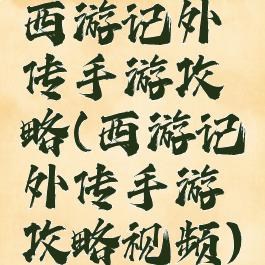 西游记外
传手游攻
略(西游记
外传手游
攻略视频)